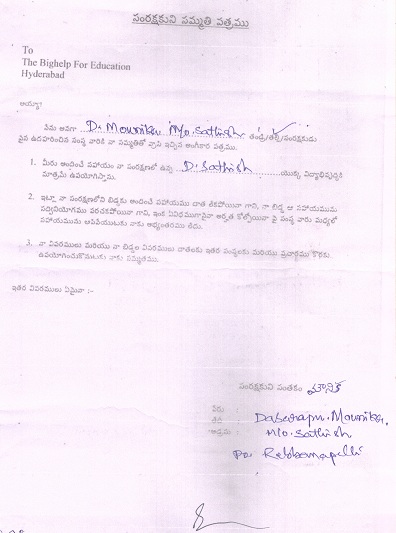 సంరక్షకుని సమ్మతి పత్రము
To
The Bighelp For Education
Hyderabad
అయ్యా!
నేను అనగా D. Mounika M/o. Sathish తండ్రి/తల్లి/సంరక్షకుడు
పైన ఉదహరించిన సంస్థ వారికి నా సమ్మతితో వ్రాసి ఇచ్చిన అంగీకార పత్రము.
1. మీరు అందించే సహాయం నా సంరక్షణలో ఉన్న D. Sathish యొక్క విద్యాభివృద్ధికి
మాత్రమే ఉపయోగిస్తాను.
2. ఇట్లా నా సంరక్షణలోని బిడ్డకు అందించే సహాయము దాత లేకపోయినా గాని, నా బిడ్డ ఆ సహాయమును
సద్వినియోగము పరచకపోయినా గాని, ఇంకే విధముగానైనా అర్హత కోల్పోయినా పై సంస్థ వారు మధ్యలో
సహాయమును ఆపివేయుటకు నాకు అభ్యంతరము లేదు.
3. నా వివరములు మరియు నా బిడ్డల వివరములు దాతలకు ఇతర సంస్థలకు మరియు ప్రచారము కొరకు
ఉపయోగించుకొనుటకు నాకు సమ్మతము.
ఇతర వివరములు ఏమైనా :-
సంరక్షకుని సంతకం మౌనిక
పేరు : Daberapu. Mounika,
M/o. Sathish